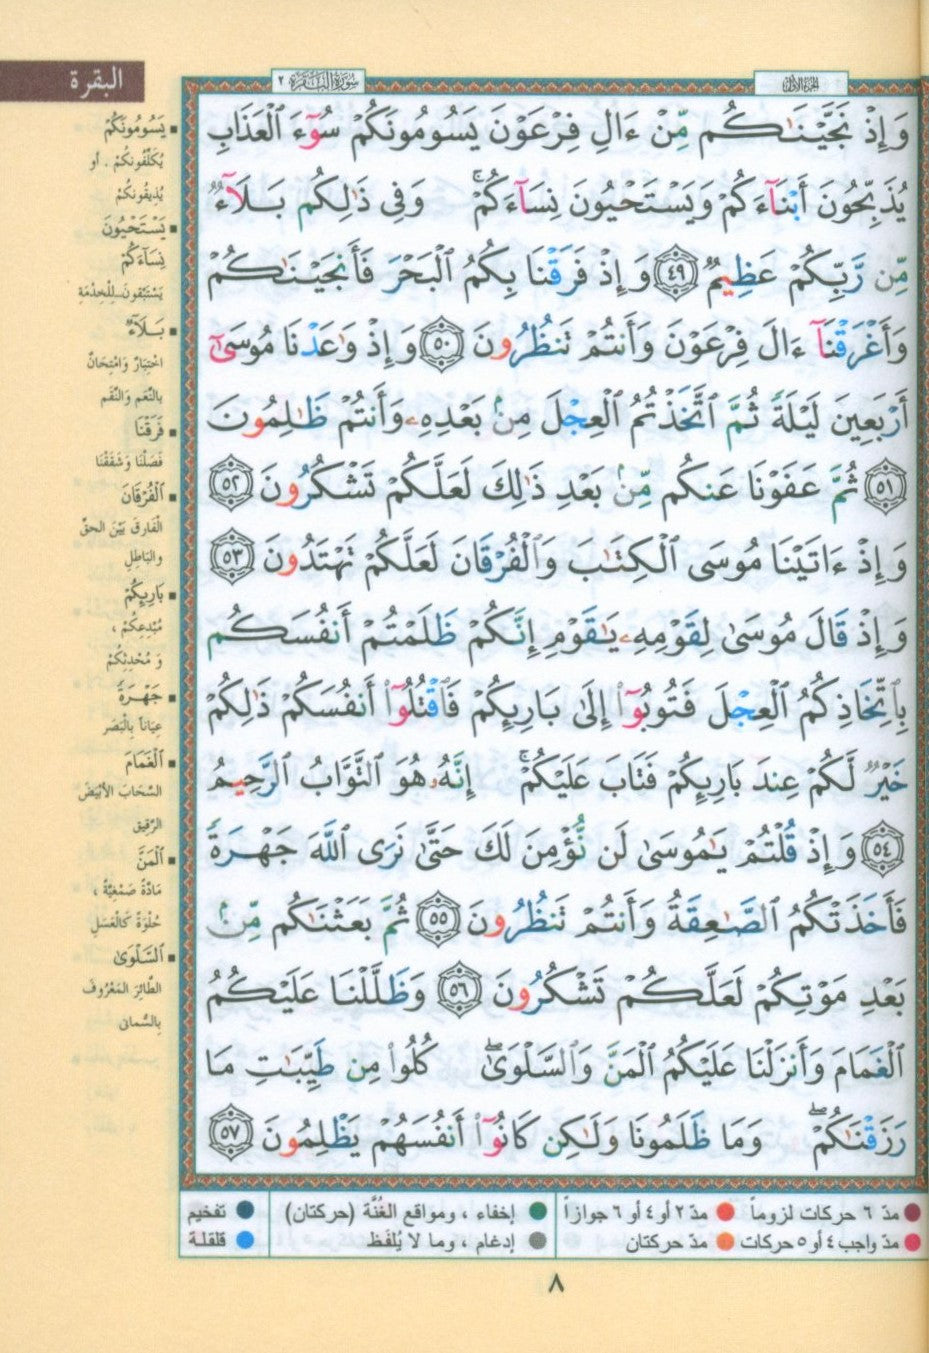 البقرة
سُورَةُ البَقَرَةِ ٢
الجزء الأول
وَإِذْ نَجَّيْنَـٰكُم مِّنْ ءَالِ فِرْعَوْنَ يَسُومُونَكُمْ سُوٓءَ ٱلْعَذَابِ
يُذَبِّحُونَ أَبْنَآءَكُمْ وَيَسْتَحْيُونَ نِسَآءَكُمْ ۚ وَفِى ذَٰلِكُم بَلَآءٌ
مِّن رَّبِّكُمْ عَظِيمٌ ٤٩ وَإِذْ فَرَقْنَا بِكُمُ ٱلْبَحْرَ فَأَنجَيْنَـٰكُمْ
وَأَغْرَقْنَآ ءَالَ فِرْعَوْنَ وَأَنتُمْ تَنظُرُونَ ٥٠ وَإِذْ وَٰعَدْنَا مُوسَىٰٓ
أَرْبَعِينَ لَيْلَةً ثُمَّ ٱتَّخَذْتُمُ ٱلْعِجْلَ مِنۢ بَعْدِهِۦ وَأَنتُمْ ظَـٰلِمُونَ
٥١ ثُمَّ عَفَوْنَا عَنكُم مِّنۢ بَعْدِ ذَٰلِكَ لَعَلَّكُمْ تَشْكُرُونَ ٥٢
وَإِذْ ءَاتَيْنَا مُوسَى ٱلْكِتَـٰبَ وَٱلْفُرْقَانَ لَعَلَّكُمْ تَهْتَدُونَ ٥٣
وَإِذْ قَالَ مُوسَىٰ لِقَوْمِهِۦ يَـٰقَوْمِ إِنَّكُمْ ظَلَمْتُمْ أَنفُسَكُم
بِٱتِّخَاذِكُمُ ٱلْعِجْلَ فَتُوبُوٓا۟ إِلَىٰ بَارِئِكُمْ فَٱقْتُلُوٓا۟ أَنفُسَكُمْ ذَٰلِكُمْ
خَيْرٌ لَّكُمْ عِندَ بَارِئِكُمْ فَتَابَ عَلَيْكُمْ ۚ إِنَّهُۥ هُوَ ٱلتَّوَّابُ ٱلرَّحِيمُ
٥٤ وَإِذْ قُلْتُمْ يَـٰمُوسَىٰ لَن نُّؤْمِنَ لَكَ حَتَّىٰ نَرَى ٱللَّهَ جَهْرَةً
فَأَخَذَتْكُمُ ٱلصَّـٰعِقَةُ وَأَنتُمْ تَنظُرُونَ ٥٥ ثُمَّ بَعَثْنَـٰكُم مِّنۢ
بَعْدِ مَوْتِكُمْ لَعَلَّكُمْ تَشْكُرُونَ ٥٦ وَظَلَّلْنَا عَلَيْكُمُ
ٱلْغَمَامَ وَأَنزَلْنَا عَلَيْكُمُ ٱلْمَنَّ وَٱلسَّلْوَىٰ ۖ كُلُوا۟ مِن طَيِّبَـٰتِ مَا
رَزَقْنَـٰكُمْ ۖ وَمَا ظَلَمُونَا وَلَـٰكِن كَانُوٓا۟ أَنفُسَهُمْ يَظْلِمُونَ ٥٧
يَسُومُونَكُمْ
يُكَلِّفُونَكُمْ . أو
يُذِيقُونَكُمْ
يَسْتَحْيُونَ
نِسَآءَكُمْ
يَسْتَبْقُونَ ـ لِلْخِدْمَةِ
بَلَآءٌ
اخْتِبَارٌ وَامْتِحَانٌ
بِالنِّعَمِ وَالنِّقَمِ
فَرَقْنَا
فَصَلْنَا وَشَقَقْنَا
ٱلْفُرْقَانَ
الْفَارِقَ بَيْنَ الحَقِّ
والبَاطِلِ
بَارِئِكُمْ
مُبْدِعِكُمْ ،
وَ مُحْدِثِكُمْ
جَهْرَةً
عِيَاناً بِالْبَصَرِ
ٱلْغَمَامَ
السَّحَابَ الأبْيَضَ
الرَّقِيقَ
ٱلْمَنَّ
مَادَّةً صَمْغِيَّةً ،
حُلْوَةً كَالعَسَلِ
ٱلسَّلْوَىٰ
الطَّائِرَ المَعْرُوفَ
بِالسُّمانى
مدّ ٦ حركات لزوماً مدّ ٢ أو ٤ أو ٦ جوازاً إخفاء ، ومواقع الغُنَّة (حركتان) تفخيم
مدّ واجب ٤ أو ٥ حركات مدّ حركتان إدغام ، وما لا يُلفَظ قلقلة
٨